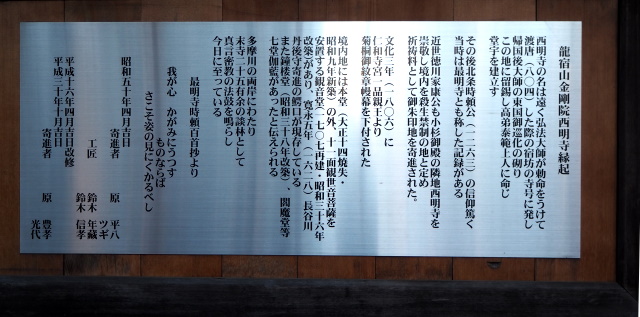 龍宿山金剛院西明寺縁起
西明寺の名は遠く弘法大師が勅命をうけて
渡唐(八〇四)した際の宿坊の寺号に発し
帰国後大師の東国御巡化の砌り
この地に留錫し高弟泰範上人に命じ
堂宇を建立す
その後北条時頼公(一二六三)の信仰篤く
当時は最明寺とも称した記録がある
近世徳川家康公も小杉御殿の隣地西明寺を
崇敬し境内を殺生禁制の地と定め
祈祷料として御朱印地を寄進された。
文化三年(一八〇六)に
仁和寺宮一品親王より
菊桐御紋章幔幕を下付された
境内地には本堂(大正十四焼失・
昭和九年新築)の外、十一面観世音菩薩を
安置する観音堂(一七〇七再建・昭和三十六年
改築)があり、寛永五年(一六二八)長谷川
丹後守寄進の山門が現存している
また鐘楼堂(昭和三十八年改築)、閻魔堂等
七堂伽藍があったと伝えられる
多摩川の両岸にわたり
末寺二十有余の談林として
真言密教の法鼓を鳴らし
今日に至っている
最明寺時頼百首抄より
我が心 かがみにうつす
ものならば
さこそ姿の見にくかるべし
昭和五十年四月吉日
寄進者 原 平八
ツギ
工匠 鈴木 年蔵
鈴木 信孝
平成十六年四月吉日改修
平成三十年十月吉日
寄進者 原 豊孝
光代